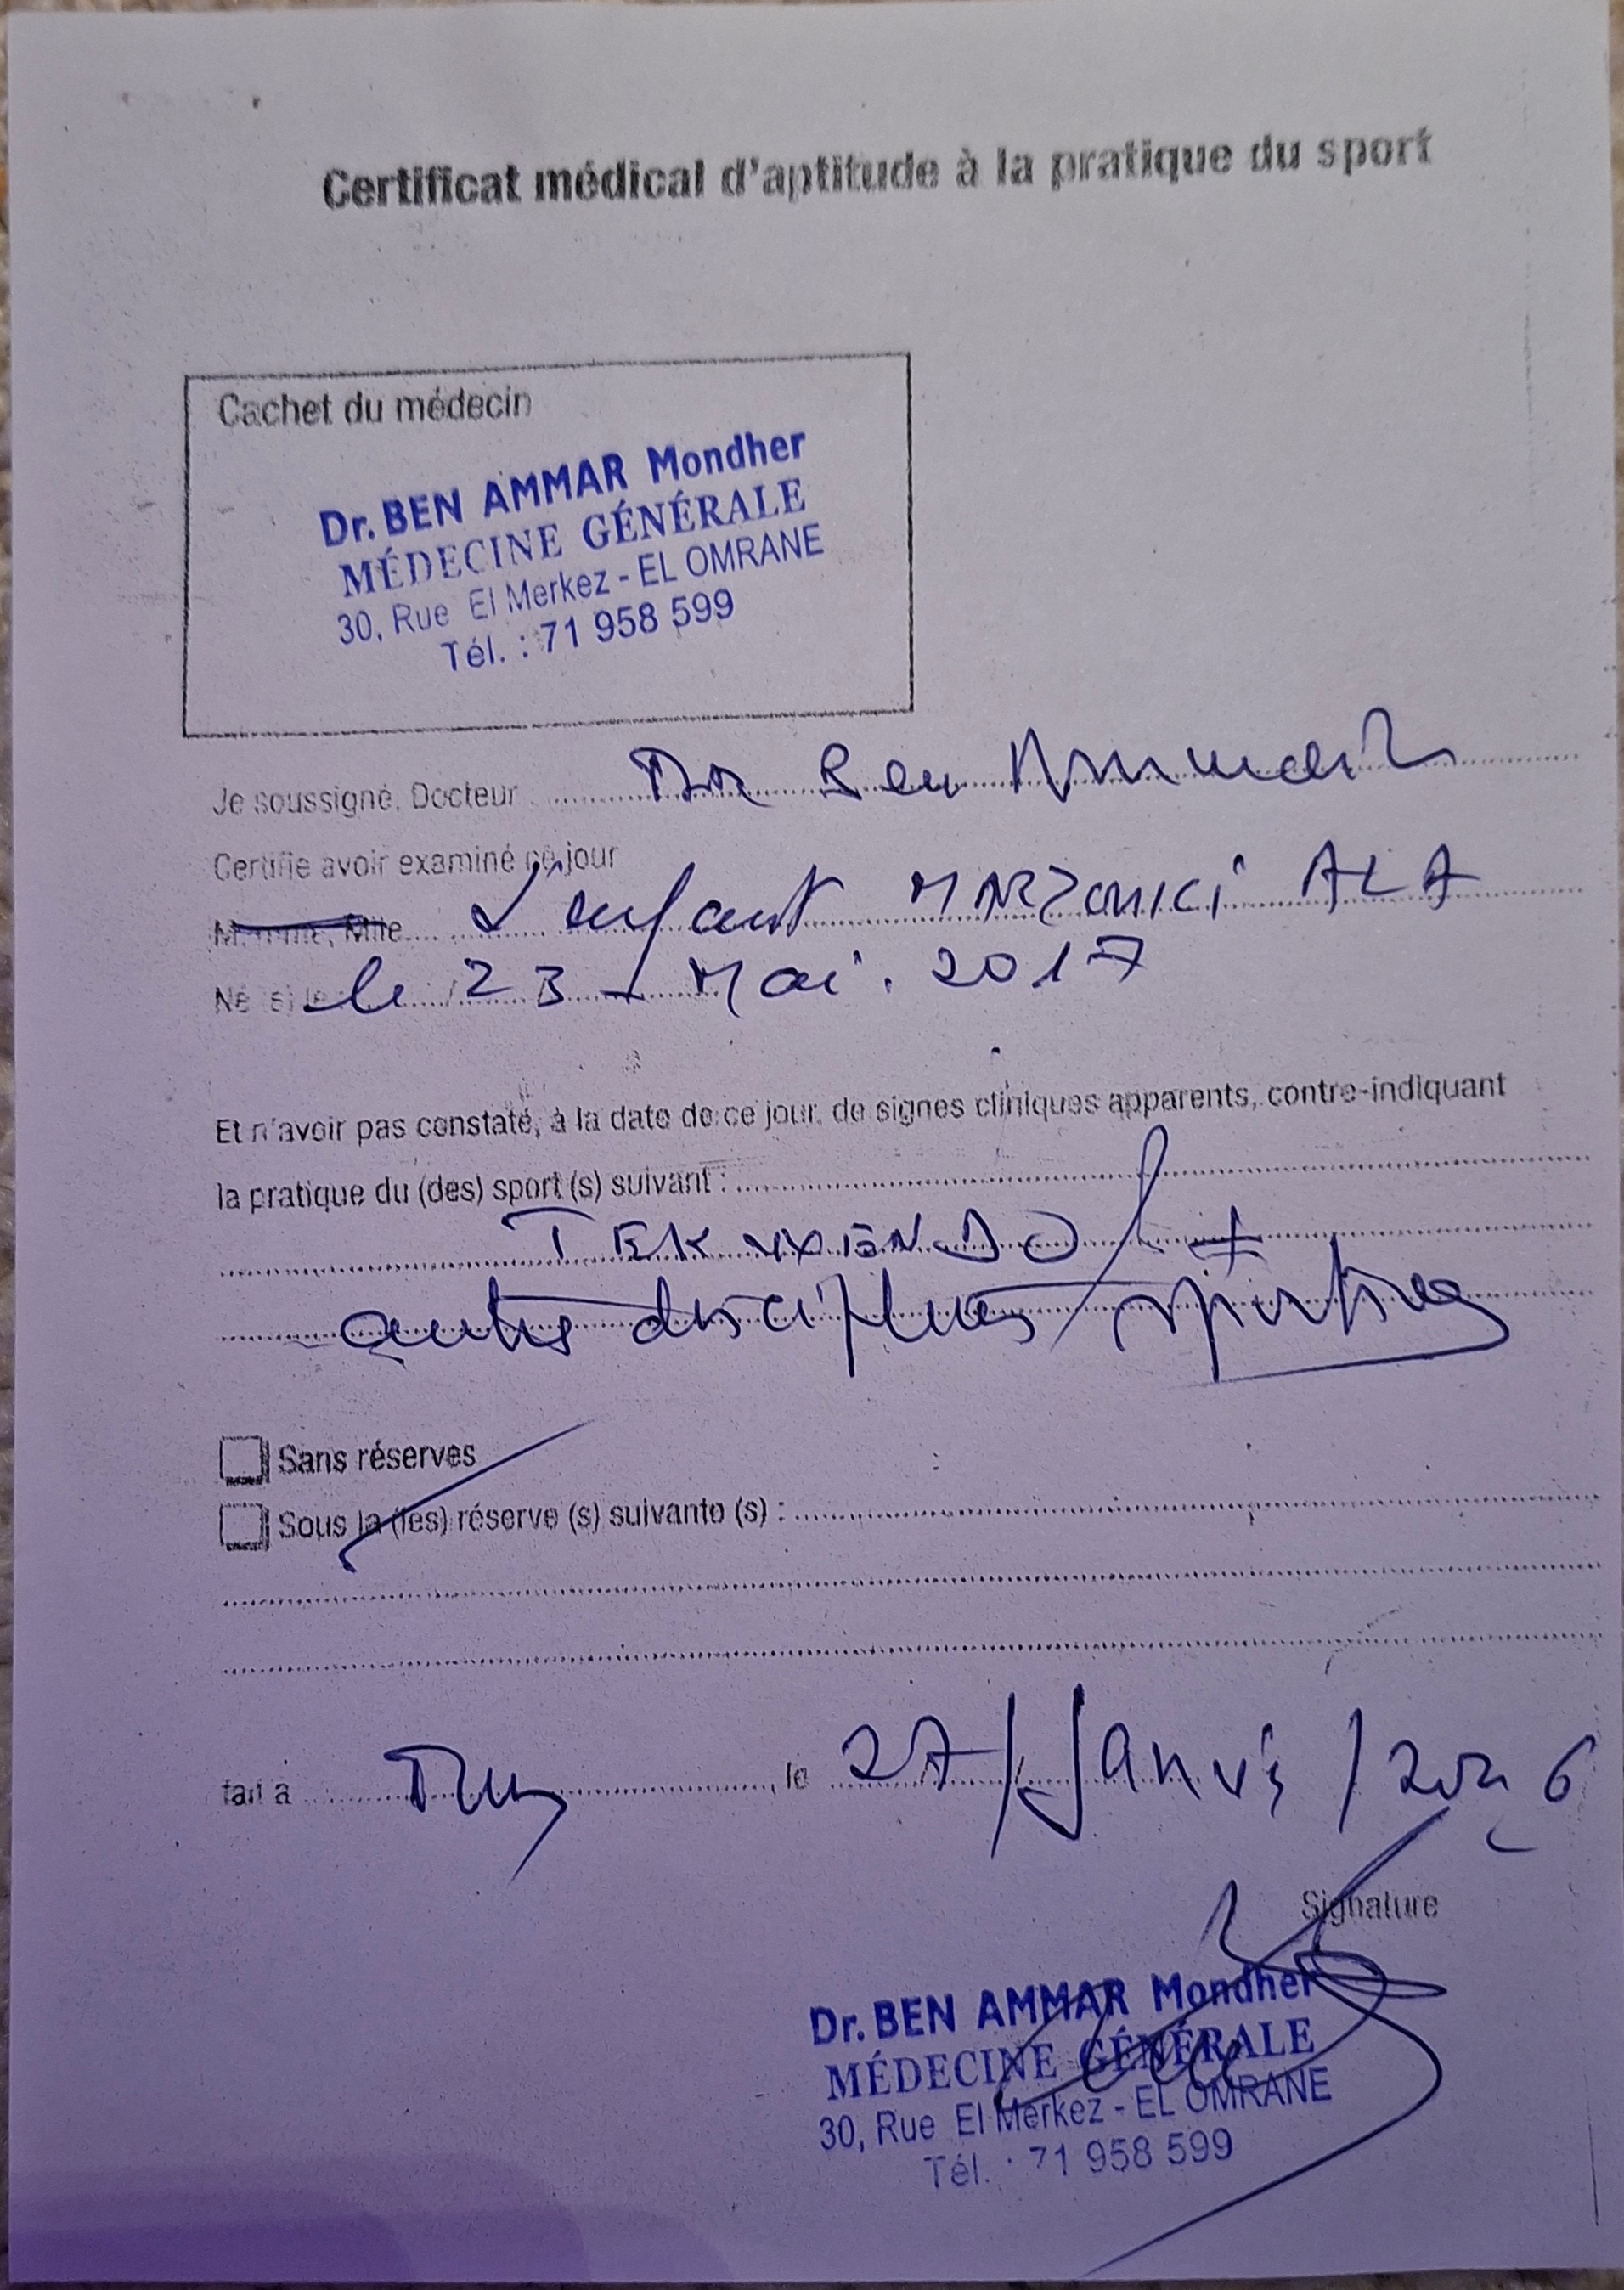 Certificat médical d'aptitude à la pratique du sport
Cachet du médecin
Dr. BEN AMMAR Mondher
MÉDECINE GÉNÉRALE
30, Rue El Merkez - EL OMRANE
Tél. : 71 958 599
Je soussigné, Docteur Dr Ben Ammar
Certifie avoir examiné ce jour
Mlle L'enfant MARZOUKI ALA
Né (e) le le 23 - Mai. 2017
Et n'avoir pas constaté, à la date de ce jour, de signes cliniques apparents, contre-indiquant
la pratique du (des) sport (s) suivant :
TEKWENDO +
autres disciplines sportives
Sans réserves
Sous la (les) réserve (s) suivante (s) :
fait à Tun, le 27/Janvi/2026
Signature
Dr. BEN AMMAR Mondher
MÉDECINE GÉNÉRALE
30, Rue El Merkez - EL OMRANE
Tél. : 71 958 599